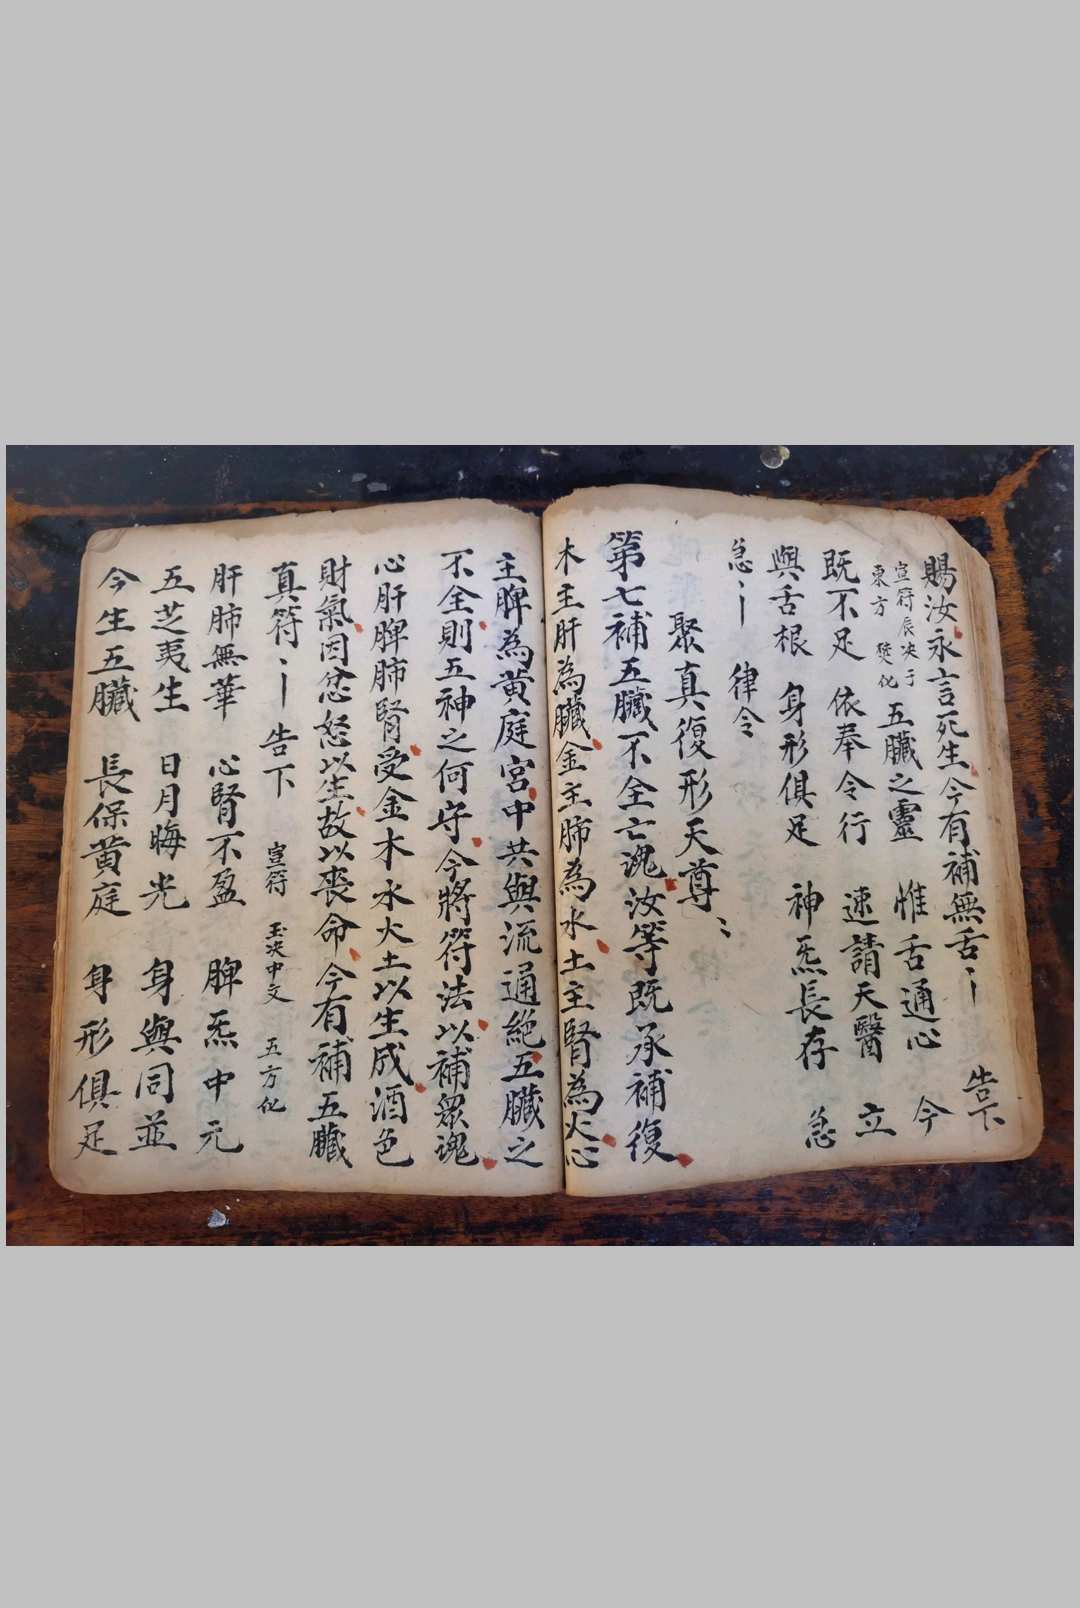 賜汝永言死生今有補無舌丶丨 告下
宣符辰決于
東方 焚化
五臟之靈 惟舌通心 今
既不足 依奉令行 速請天醫 立
與舌根 身形俱足 神炁長存 急
急丶丨 律令
聚真復形天尊丶丶
第七補五臟不全亡魂汝等既承補復
木主肝為臟金主肺為水土主腎為火心
主脾為黄庭宮中共與流通絶五臟之
不全則五神之何守今將符法以補眾魂
心肝脾肺腎受金木水火土以生成酒色
財氣因忿怒以生故以喪命今有補五臟
真符丶丨告下 宣符 玉決中文 五方化
肝肺無華 心腎不盈 脾炁中元
五芝夷生 日月晦光 身與同並
今生五臟 長保黄庭 身形俱足